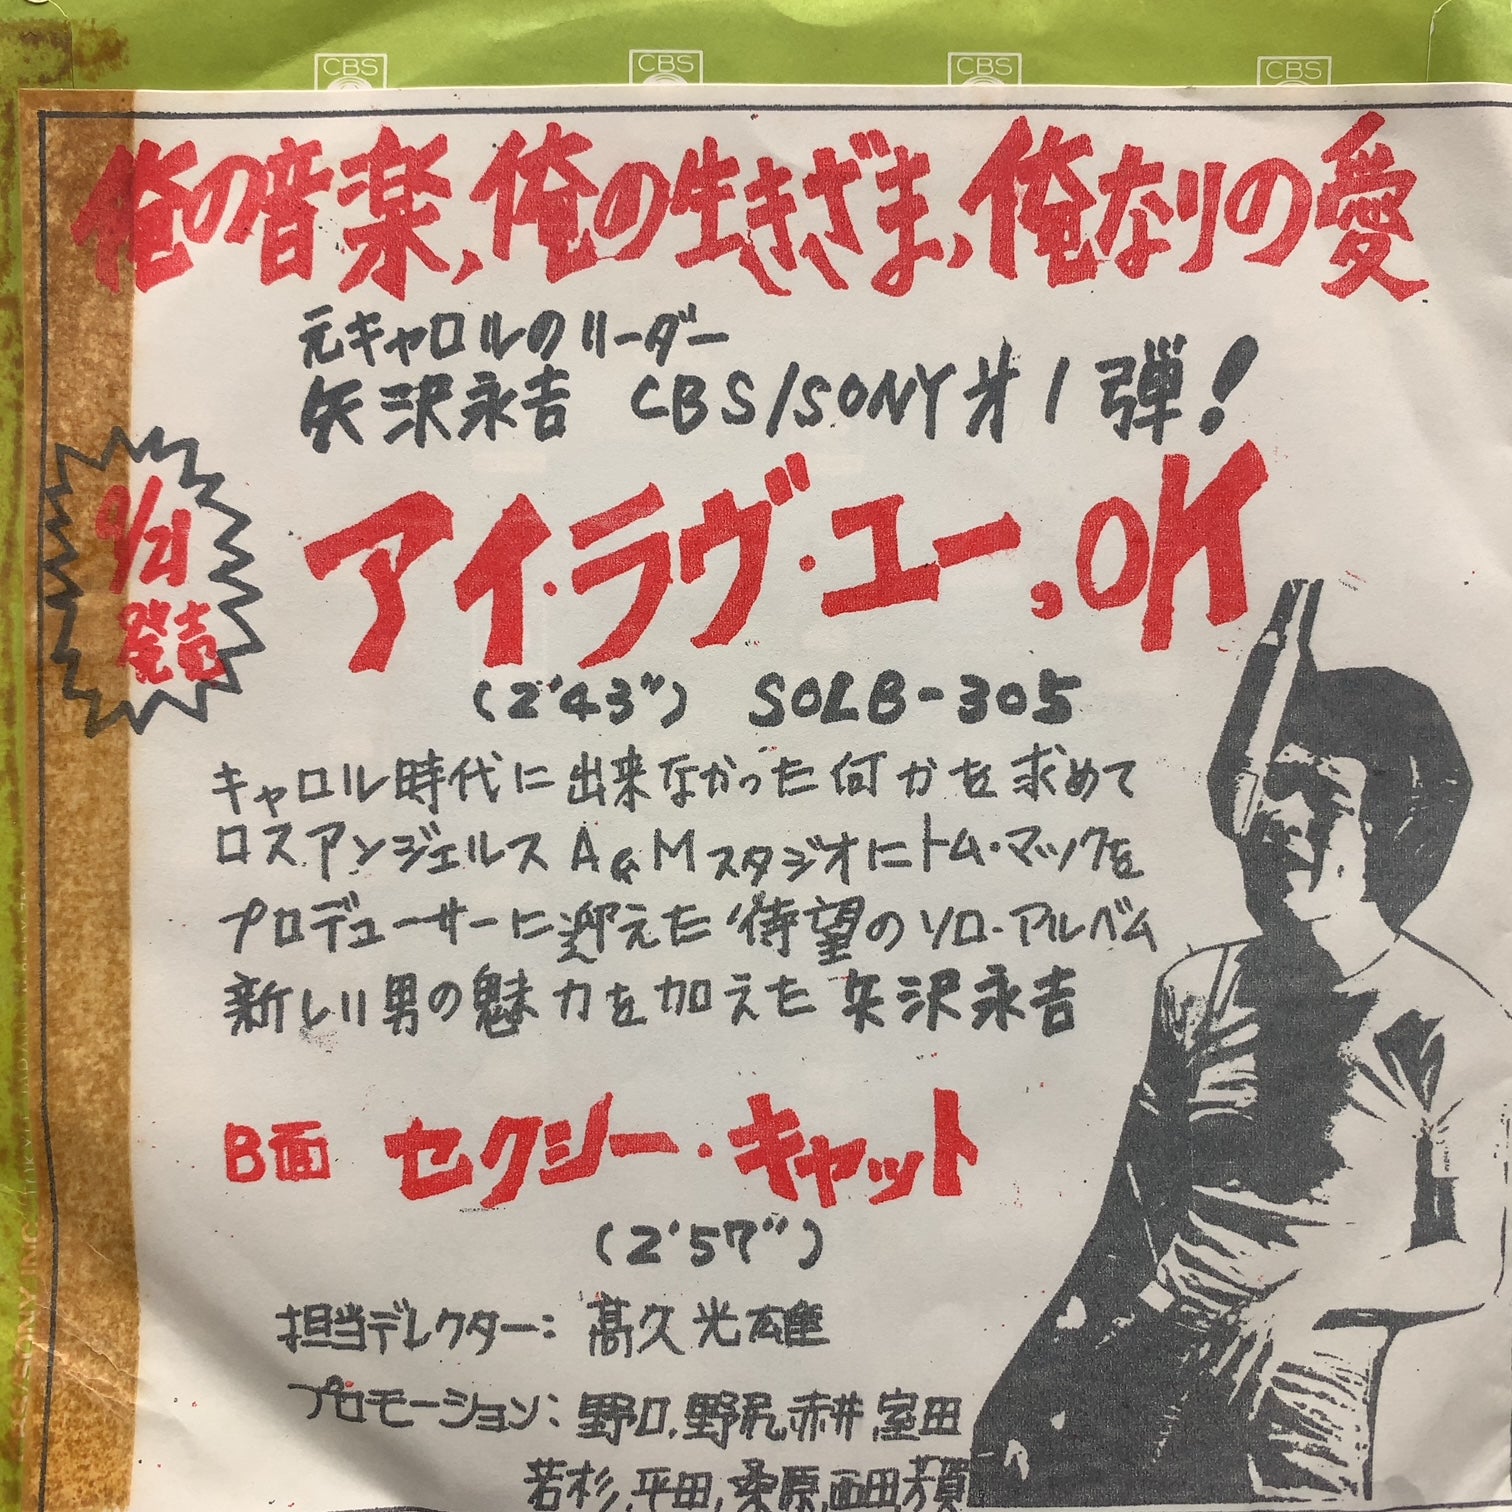 CBS CBS CBS CBS
俺の音楽,俺の生きざま,俺なりの愛
元キャロルのリーダー
矢沢永吉 CBS/SONY才1弾!
9/21
発売
アイ・ラヴ・ユー,OK
(2'43") SOLB-305
キャロル時代に出来なかった何かを求めて
ロスアンジェルスA&Mスタジオにトム・マックを
プロデューサーに迎えた待望のソロ・アルバム
新しい男の魅力を加えた矢沢永吉
B面 セクシー・キャット
(2'57")
担当デレクター:髙久光雄
プロモーション:野口,野尻,赤井,室田
若杉,平田,桑原,西田,芳賀